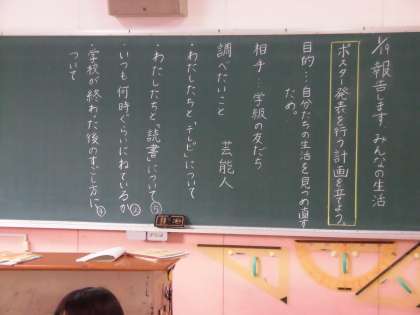 1/19 報告します、みんなの生活
ポスター発表を行う計画を立てよう。
目的…自分たちの生活を見つめ直す
ため。
相手…学級の友だち
調べたいこと 芸能人
・わたしたちと「テレビ」について
・わたしたちと、「読書」について⑤
・いつも何時ぐらいにねているか②
・学校が終わった後のすごし方に④
ついて